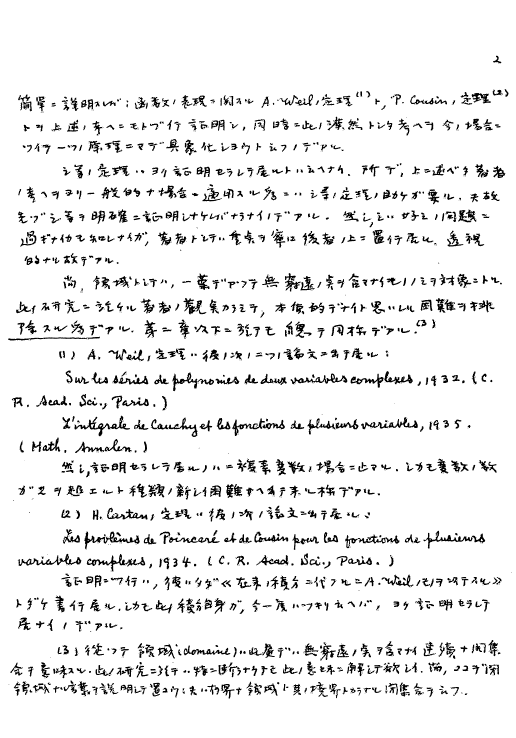 2
簡單ニ説明スレバ: 函数ノ表現ニ関スル A. Weil ノ定理(1)ト, P. Cousin ノ定理(2)
トヲ上述ノ考ヘニモトヅイテ証明シ, 同時ニ此ノ漠然トシタ考ヘヲ今ノ場合ニ
原理ニマデ具象化シヨウト云フノデアル.
定理ハヨク証明セラレテ居ルトハイヘナイ. 所デ, 上ニ述ベタ著者
ノ考ヘヲヨリ一般的ナ場合ニ適用スル為ニハ 定理ノ助ケガ要ル. 夫故
先ヅ 明確ニ証明シナケレバナラナイノデアル. 然シ 問題ニ
過ギナイカモ知レナイガ, 著者トシテハ重点ヲ寧ロ後者ノ上ニ置イテ居ル. 透視
的ナ故デアル.
尚, 領域トシテハ, 一葉デアツテ無窮遠点ヲ含マナイモノノミヲ対象ニトル.
此ノ研究ニ於ケル著者ノ観点カラミテ, 本質的デナイト思ハレル困難ヲ排
除スル為デアル. 第二章以下ニ於テモ總テ同様デアル.(3)
(1) A. Weil ノ定理ハ彼ノ次ノ二ツノ論文ニ出テ居ル:
Sur les séries de polynomes de deux variables complexes, 1932. (C.
R. Acad. Sci., Paris.)
L'intégrale de Cauchy et les fonctions de plusieurs variables, 1935.
(Math. Annalen.)
然シ, 証明セラレテ居ルノハ二複素変数ノ場合ニ止マル. シカモ変数ノ数
ガ二ヲ超エルト種類ノ新シイ困難サヘ出テ来ル様デアル.
(2) H. Cartan ノ定理ハ彼ノ次ノ論文ニ出テ居ル:
Les problèmes de Poincaré et de Cousin pour les fonctions de plusieurs
variables complexes, 1934. (C. R. Acad. Sci., Paris.)
証明ニツイテハ, 彼ハタダ《在来ノ積分ニ代フルニ A. Weil ノモノヲ以テスル》
トダケ書イテ居ル. シカモ此ノ積分自身ガ, 今一度ハツキリ云ヘバ, ヨク証明セラレテ
居ナイノデアル.
(3) 従ツテ領域 (domaine) ハ此處デハ無窮遠点ヲ含マナイ連續ナ開集
合ヲ意味スル. 此ノ研究ニ於テハ特ニ断ラナクテモ此ノ意味ニ解シテ欲シイ. 尚, ココデ閉
領域ナル言葉ヲ説明シテ置コウ: 夫ハ有界ナ領域ト其ノ境界トカラナル閉集合ヲ云フ.